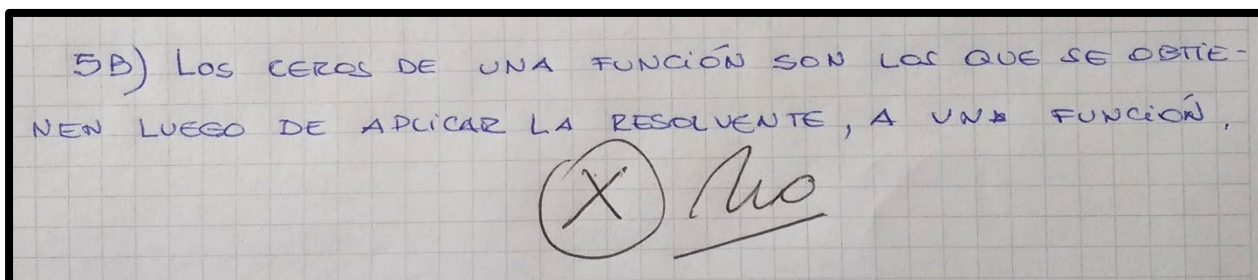 5B) LOS CEROS DE UNA FUNCIÓN SON LOS QUE SE OBTIE-
NEN LUEGO DE APLICAR LA RESOLVENTE, A UNA FUNCIÓN.
X No